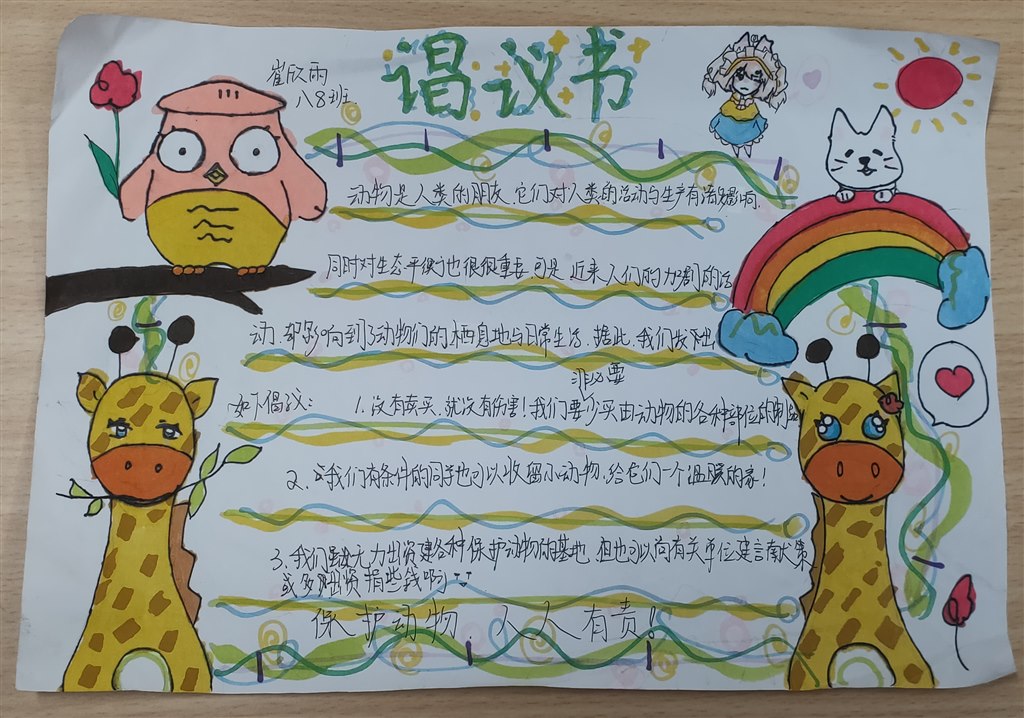 倡议书
崔欣雨
八8班
动物是人类的朋友,它们对人类的活动与生产有诸多影响.
同时对生态平衡也很很重要,可是 近来人们的力
动.却影响到了动物们的栖息地与日常生活.据此,我们发出
非必要
如下倡议: 1.没有卖买.就没有伤害!我们要少买由动物的各种部位的制品
2.我们有条件的同学也可以收留小动物,给它们一个温暖的家!
3.我们虽无力出资建各种保护动物的基地,但也可以向有关单位建言献策
或多出资捐些钱啊
保护动物,人人有责!